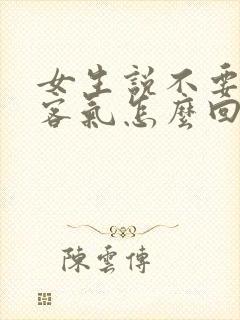 女生説不要
客氣怎麼回
陳雲傳